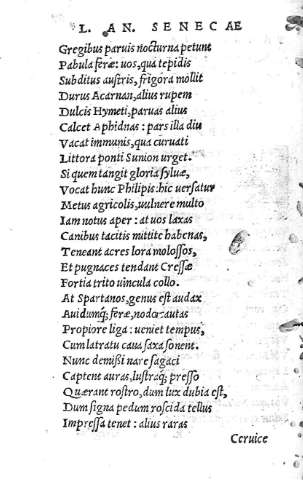 L. AN. SENECAE
Gregibus paruis nocturna petunt
Pabula feræ: uos, qua tepidis
Subditus austris, frigora mollit
Durus Acarnan, alius rupem
Dulcis Hymeti, paruas alius
Calcet Aphidnas: pars illa diu
Vacat immunis, qua curuati
Littora ponti Sunion urget.
Si quem tangit gloria syluæ,
Vocat hunc Philipis: hic uersatur
Metus agricolis, uulnere multo
Iam notus aper: at uos laxas
Canibus tacitis mittite habenas,
Teneant acres lora molossos,
Et pugnaces tendant Cressæ
Fortia trito uincula collo.
At Spartanos, genus est audax
Auidumq; feræ, nodo cautas
Propiore liga: ueniet tempus,
Cum latratu caua saxa sonent.
Nunc demissi nare sagaci
Captent auras, lustraq; presso
Quærant rostro, dum lux dubia est,
Dum signa pedum roscida tellus
Impressa tenet: alius raras
Ceruice